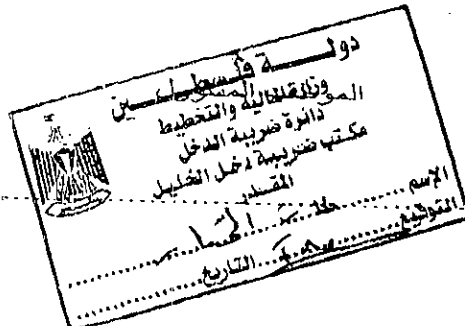 دولة فلسطين
وزارة المالية والتخطيط
دائرة ضريبة الدخل
مكتب ضريبة دخل الخليل
المقدر
الاسم
التوقيع التاريخ